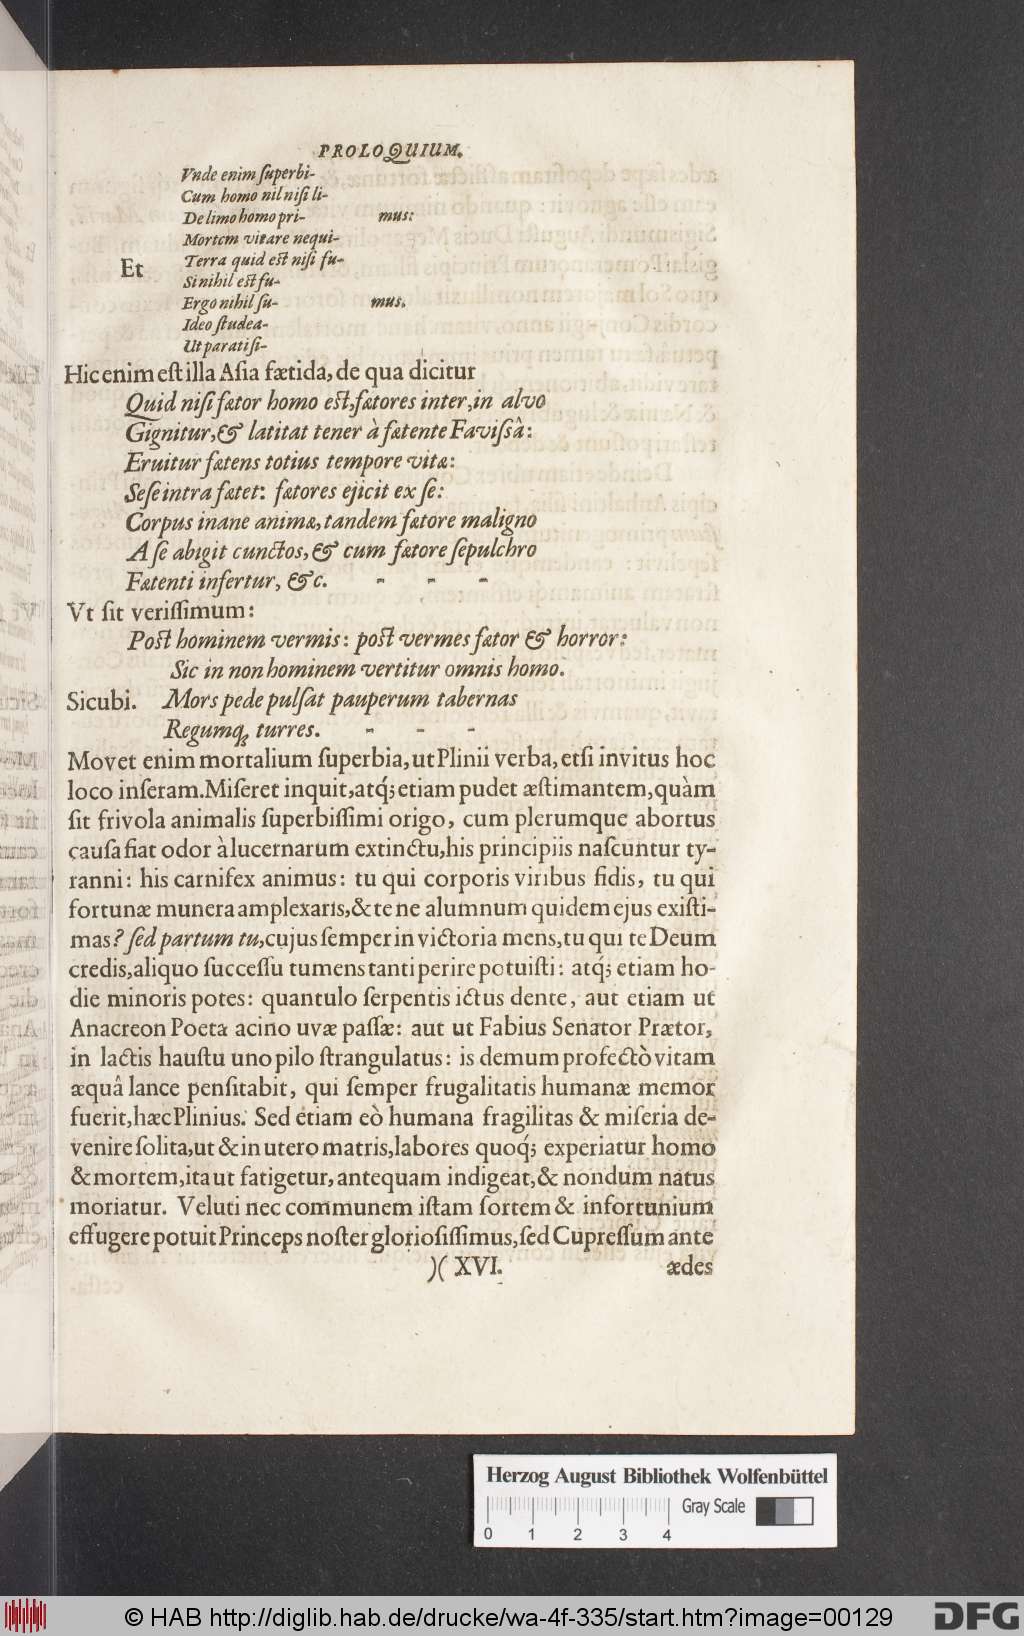 PROLOQUIUM.
Vnde enim ſuperbi-
Cum homo nil niſi li-
De limo homo pri- mus:
Mortem vitare nequi-
Et Terra quid est niſi fu-
Si nihil est fu-
Ergo nihil ſu- mus.
Ideo ſtudea-
Ut parati ſi-
Hic enim eſt illa Aſia fætida, de qua dicitur
Quid niſi fætor homo est, fætores inter, in alvo
Gignitur, & latitat tener à fætente Faviſsâ:
Eruitur fætens totius tempore vitæ:
Seſe intra fætet: fætores ejicit ex ſe:
Corpus inane animæ, tandem fætore maligno
A ſe abigit cunctos, & cum fætore ſepulchro
Fætenti infertur, &c. - - -
Vt ſit veriſſimum:
Post hominem vermis: post vermes fætor & horror:
Sic in non hominem vertitur omnis homo.
Sicubi. Mors pede pulſat pauperum tabernas
Regumq; turres. - - -
Movet enim mortalium ſuperbia, ut Plinii verba, etſi invitus hoc
loco inſeram. Miſeret inquit, atq́; etiam pudet æſtimantem, quàm
ſit frivola animalis ſuperbiſſimi origo, cum plerumque abortus
cauſa fiat odor à lucernarum extinctu, his principiis naſcuntur ty-
ranni: his carnifex animus: tu qui corporis viribus fidis, tu qui
fortunæ munera amplexaris, & te ne alumnum quidem ejus exiſti-
mas? ſed partum tu, cujus ſemper in victoria mens, tu qui te Deum
credis, aliquo ſucceſſu tumens tanti perire potuiſti: atq́; etiam ho-
die minoris potes: quantulo ſerpentis ictus dente, aut etiam ut
Anacreon Poeta acino uvæ paſſæ: aut ut Fabius Senator Prætor,
in lactis hauſtu uno pilo ſtrangulatus: is demum profectò vitam
æquâ lance penſitabit, qui ſemper frugalitatis humanæ memor
fuerit, hæc Plinius. Sed etiam eò humana fragilitas & miſeria de-
venire ſolita, ut & in utero matris, labores quoq́; experiatur homo
& mortem, ita ut fatigetur, antequam indigeat, & nondum natus
moriatur. Veluti nec communem iſtam ſortem & infortunium
effugere potuit Princeps noſter glorioſiſſimus, ſed Cupreſſum ante
)( XVI. ædes
Herzog August Bibliothek Wolfenbüttel
Gray Scale
0 1 2 3 4
© HAB http://diglib.hab.de/drucke/wa-4f-335/start.htm?image=00129
DFG